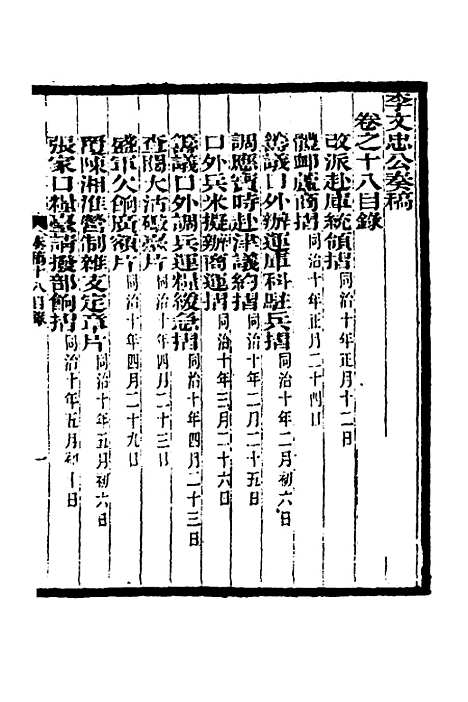 李文忠公奏稿
卷之十八目錄
改派赴庫統領摺同治十年正月十二日
體卹蘆商摺同治十年正月二十四日
籌議口外辦運庫科駐兵摺同治十年二月初六日
調應寶時赴津議約摺同治十年二月二十五日
口外兵米擬辦商運摺同治十年三月二十六日
籌議口外調兵運糧緩急摺同治十年四月二十三日
查閱大沽礮臺片同治十年四月二十三日
盛軍欠餉廣額片同治十年四月二十九日
覆陳湘淮營制雜支定章片同治十年五月初六日
張家口糧臺請撥部餉摺同治十年五月初十日
奏稿十八目錄
一